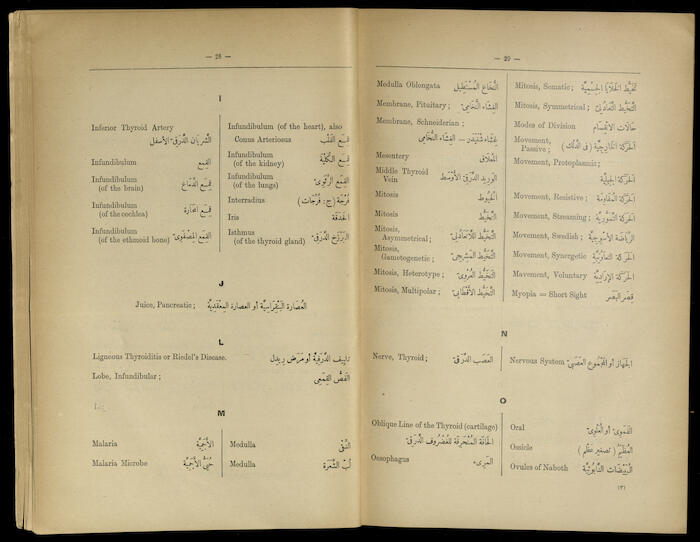 — 28 —
I
Inferior Thyroid Artery
الشريان الدَّرَقيّ الأسفل
Infundibulum
القِمع
Infundibulum
(of the brain) قِمع الدّماغ
Infundibulum
(of the cochlea) قِمع المحارة
Infundibulum
(of the ethmoid bone) القِمع المِصفَوِيّ
Infundibulum (of the heart), also
Conus Arteriosus قِمع القَلب
Infundibulum
(of the kidney) قِمع الكُلْيَة
Infundibulum
(of the lungs) القِمع الرِّئَوِيّ
Interradius فُرْجَة (ج: فُرُجَات)
Iris الحَدَقَة
Isthmus
(of the thyroid gland) البَرْزَخ الدَّرَقيّ
J
Juice, Pancreatic; العُصَارة البَنْقِراسِيَّة أو العصارة المِعْقَدِيَّة
L
Ligneous Thyroiditis or Riedel's Disease. تليِيف الدَّرَقِيَّة أو مَرَض رِيدِل
Lobe, Infundibular; الفَصّ القِمَعِي
M
Malaria
Malaria Microbe
Medulla
Medulla لُبّ الشَّعَرة
— 29 —
Medulla Oblongata النُّخَاع المُسْتَطِيل
Membrane, Pituitary; الغِشَاء النُّخَامِيّ
Membrane, Schneiderian;
غِشَاء شْنَيْدَر — الغِشَاء النُّخَامِي
Mesentery
Middle Thyroid
Vein الوَرِيد الدَّرَقيّ الأوْسَط
Mitosis الخُيُوط
Mitosis التَّخَيُّط
Mitosis,
Asymmetrical; التَّخَيُّط اللّاتَعَادُلِيّ
Mitosis,
Gametogenetic; التَّخَيُّط المَشِيجِي
Mitosis, Heterotype; التَّخَيُّط العُرْوِيّ
Mitosis, Multipolar; التَّخَيُّط الأقْطَابِيّ
Mitosis, Somatic; تَخَيُّط الخَلَايَا الجِسْمِيَّة
Mitosis, Symmetrical; التَّخَيُّط التَّعَادُلِيّ
Modes of Division حَالَات الانْقِسَام
Movement,
Passive; الحَرَكَة الخَارِجِيَّة (في الدَّلْك)
Movement, Protoplasmic;
الحَرَكَة الجِبِلِيَّة
Movement, Resistive; الحَرَكَة المُقَاوِمَة
Movement, Streaming; الحَرَكَة التَّمَوُّرِيَّة
Movement, Swedish; الرِّيَاضَة الأُسْوِجِيَّة
Movement, Synergetic الحَرَكَة التَّعَاوُنِيَّة
Movement, Voluntary الحَرَكَة الإرَادِيَّة
Myopia = Short Sight قِصَر البَصَر
N
Nerve, Thyroid; العَصَب الدَّرَقيّ
Nervous System الجِهَاز أو المَجْمُوع العَصَبِيّ
O
Oblique Line of the Thyroid (cartilage)
الحَافَة المُنْحَرِفَة للغُضْرُوف الدَّرَقيّ
Oesophagus المَرِيء
Oral الفَمَوِيّ أو العُلْوِيّ
Ossicle العُظَيْم (تصغير عَظْم)
Ovules of Naboth البُيَيْضَات النَّابُوتِيَّة
(٣)